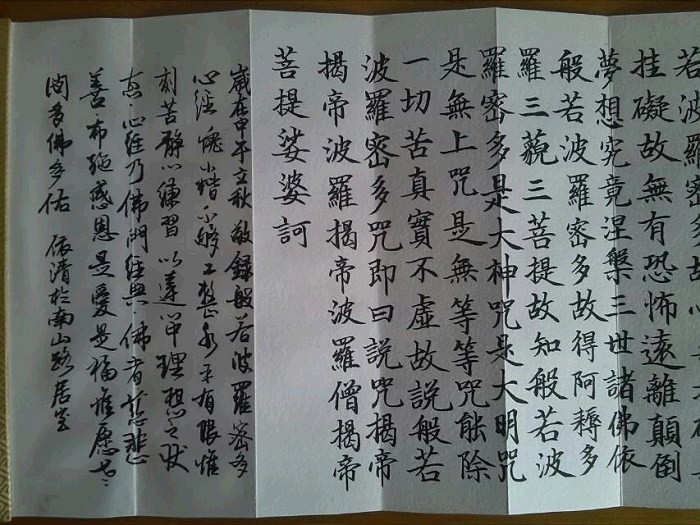 若波羅密多
挂礙故無有恐怖遠離顛倒
夢想究竟涅槃三世諸佛依
般若波羅密多故得阿耨多
羅三藐三菩提故知般若波
羅密多是大神咒是大明咒
是無上咒是無等等咒能除
一切苦真實不虛故說般若
波羅密多咒即曰說咒揭帝
揭帝波羅揭帝波羅僧揭帝
菩提娑婆訶
歲在甲午立秋敬録般若波羅密多
心經愧小楷不夠工整水平有限惟
刻苦静心練習以達理想之狀
态心經乃佛門經典佛者慈悲
善布施感恩是愛是福唯愿
間多佛多佑依清於南山路居室